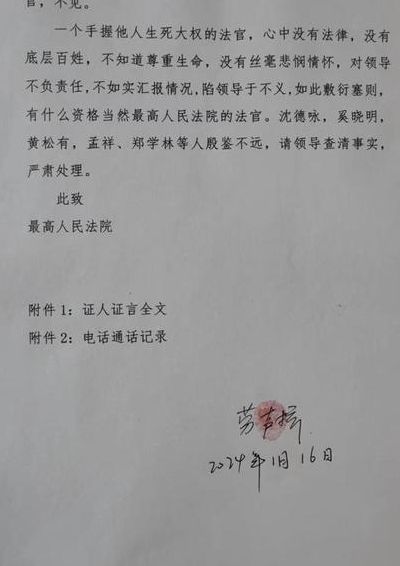 官，不见。
一个手握他人生死大权的法官，心中没有法律，没有
底层百姓，不知道尊重生命，没有丝毫悲悯情怀，对领导
不负责任，不如实汇报情况，陷领导于不义，如此敷衍塞则，
有什么资格当然最高人民法院的法官。沈德咏，奚晓明，
黄松有，孟祥、郑学林等人殷鉴不远，请领导查清事实，
严肃处理。
此致
最高人民法院
附件1：证人证言全文
附件2：电话通话记录
劳声
2024年1月16日